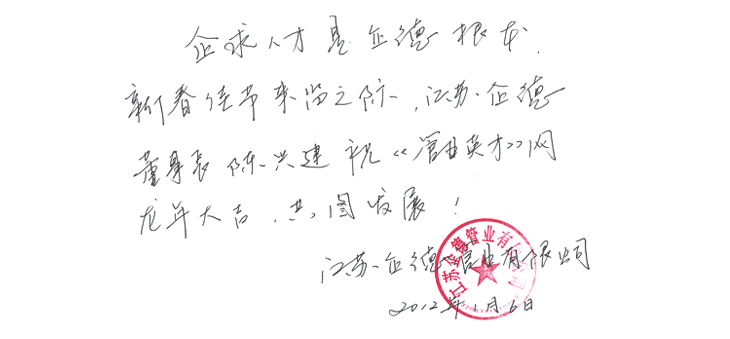 企求人才是企德根本.
新春佳节来临之际,江苏企德
董事长陈兴建祝《管业英才》网
龙年大吉,共图发展!
江苏企德管业有限公司
2012年1月6日